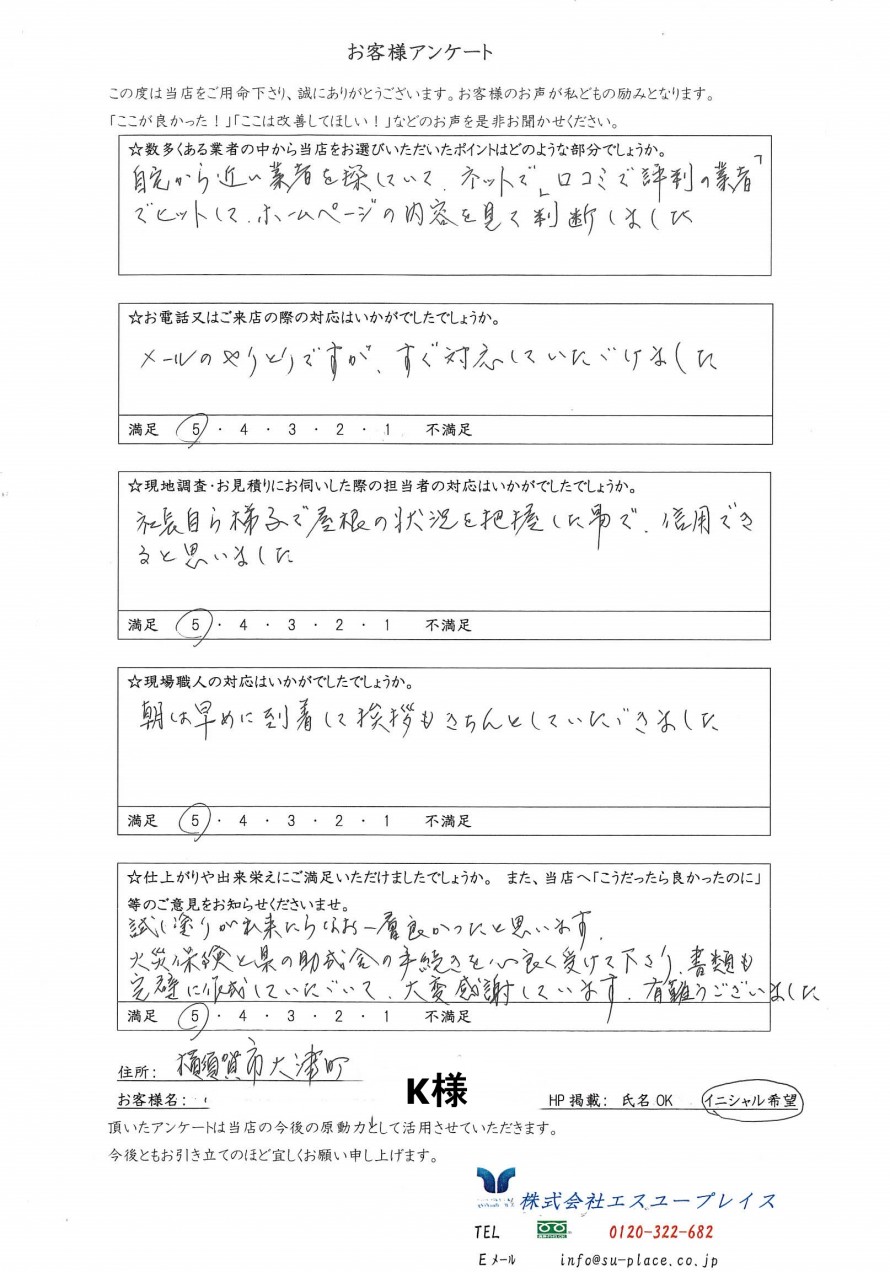 お客様アンケート
この度は当店をご用命下さり、誠にありがとうございます。お客様のお声が私どもの励みとなります。
「ここが良かった！」「ここは改善してほしい！」などのお声を是非お聞かせください。
☆数多くある業者の中から当店をお選びいただいたポイントはどのような部分でしょうか。
自宅から近い業者を探していて、ネットで「口コミで評判の業者」
でヒットして、ホームページの内容を見て判断しました
☆お電話又はご来店の際の対応はいかがでしたでしょうか。
メールのやりとりですが、すぐ対応していただけました
満足 5 ・ 4 ・ 3 ・ 2 ・ 1 不満足
☆現地調査・お見積りにお伺いした際の担当者の対応はいかがでしたでしょうか。
社長自ら梯子で屋根の状況を把握した事で、信用でき
ると思いました
満足 5 ・ 4 ・ 3 ・ 2 ・ 1 不満足
☆現場職人の対応はいかがでしたでしょうか。
朝は早めに到着して挨拶もきちんとしていただきました
満足 5 ・ 4 ・ 3 ・ 2 ・ 1 不満足
☆仕上がりや出来栄えにご満足いただけましたでしょうか。 また、当店へ「こうだったら良かったのに」
等のご意見をお知らせくださいませ。
試し塗りが出来たらなお一層良かったと思います。
火災保険と県の助成金の手続きを心良く受けて下さり、書類も
完璧に作成していただいて、大変感謝しています。有難うございました
満足 5 ・ 4 ・ 3 ・ 2 ・ 1 不満足
住所: 横須賀市大津町
お客様名: K様 HP掲載: 氏名OK イニシャル希望
頂いたアンケートは当店の今後の原動力として活用させていただきます。
今後ともお引き立てのほど宜しくお願い申し上げます。
株式会社エスユープレイス
TEL 0120-322-682
Eメール info@su-place.co.jp